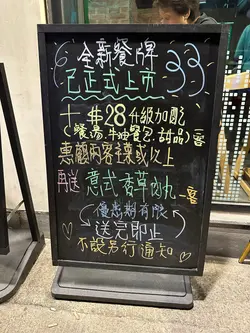 全新餐牌
已正式上市
+$28升級加配
(餐湯、牛油餐包、甜品)一客
惠顧兩客主菜或以上
再送 意式香草肉丸 一客
優惠期有限
送完即止
不設另行通知